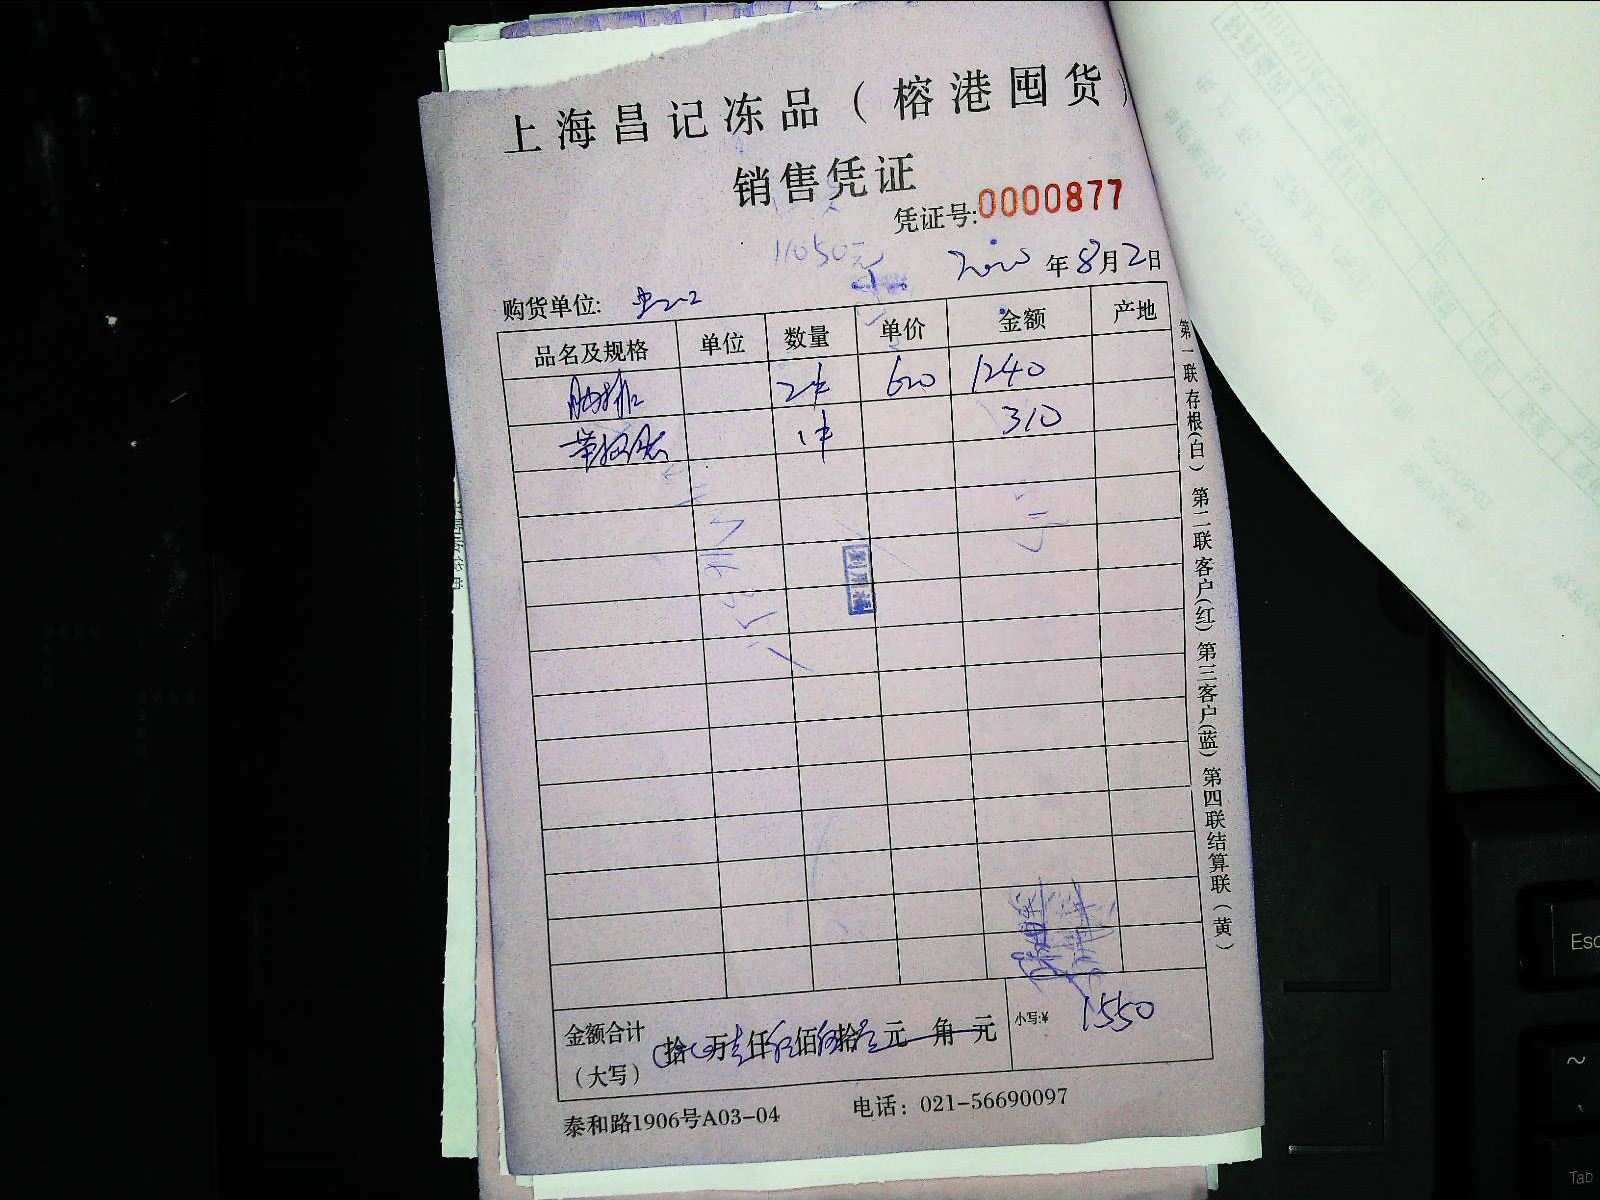 上海昌记冻品（榕港囤货）
销售凭证
凭证号:0000877
11050元
2020年8月2日
购货单位:
品名及规格 单位 数量 单价 金额 产地
2件 620 1240
1件 310
金额合计（大写） 拾 万壹仟伍佰伍拾元 角 元 小写:¥ 1550
泰和路1906号A03-04 电话：021-56690097
第一联存根(白) 第二联客户(红) 第三客户(蓝) 第四联结算联(黄)
Esc
~
Tab